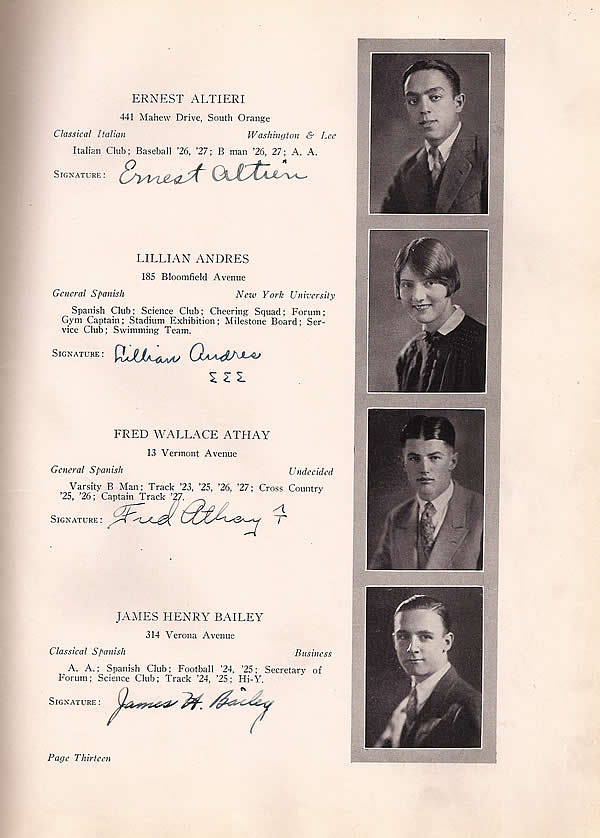 ERNEST ALTIERI
441 Mahew Drive, South Orange
Classical Italian Washington & Lee
Italian Club; Baseball '26, '27; B man '26, 27; A. A.
SIGNATURE: Ernest Altieri
LILLIAN ANDRES
185 Bloomfield Avenue
General Spanish New York University
Spanish Club; Science Club; Cheering Squad; Forum;
Gym Captain; Stadium Exhibition; Milestone Board; Ser-
vice Club; Swimming Team.
SIGNATURE: Lillian Andres
ΣΣΣ
FRED WALLACE ATHAY
13 Vermont Avenue
General Spanish Undecided
Varsity B Man; Track '23, '25, '26, '27; Cross Country
'25, '26; Captain Track '27.
SIGNATURE: Fred Athay
JAMES HENRY BAILEY
314 Verona Avenue
Classical Spanish Business
A. A.; Spanish Club; Football '24, '25; Secretary of
Forum; Science Club; Track '24, '25; Hi-Y.
SIGNATURE: James H. Bailey
Page Thirteen